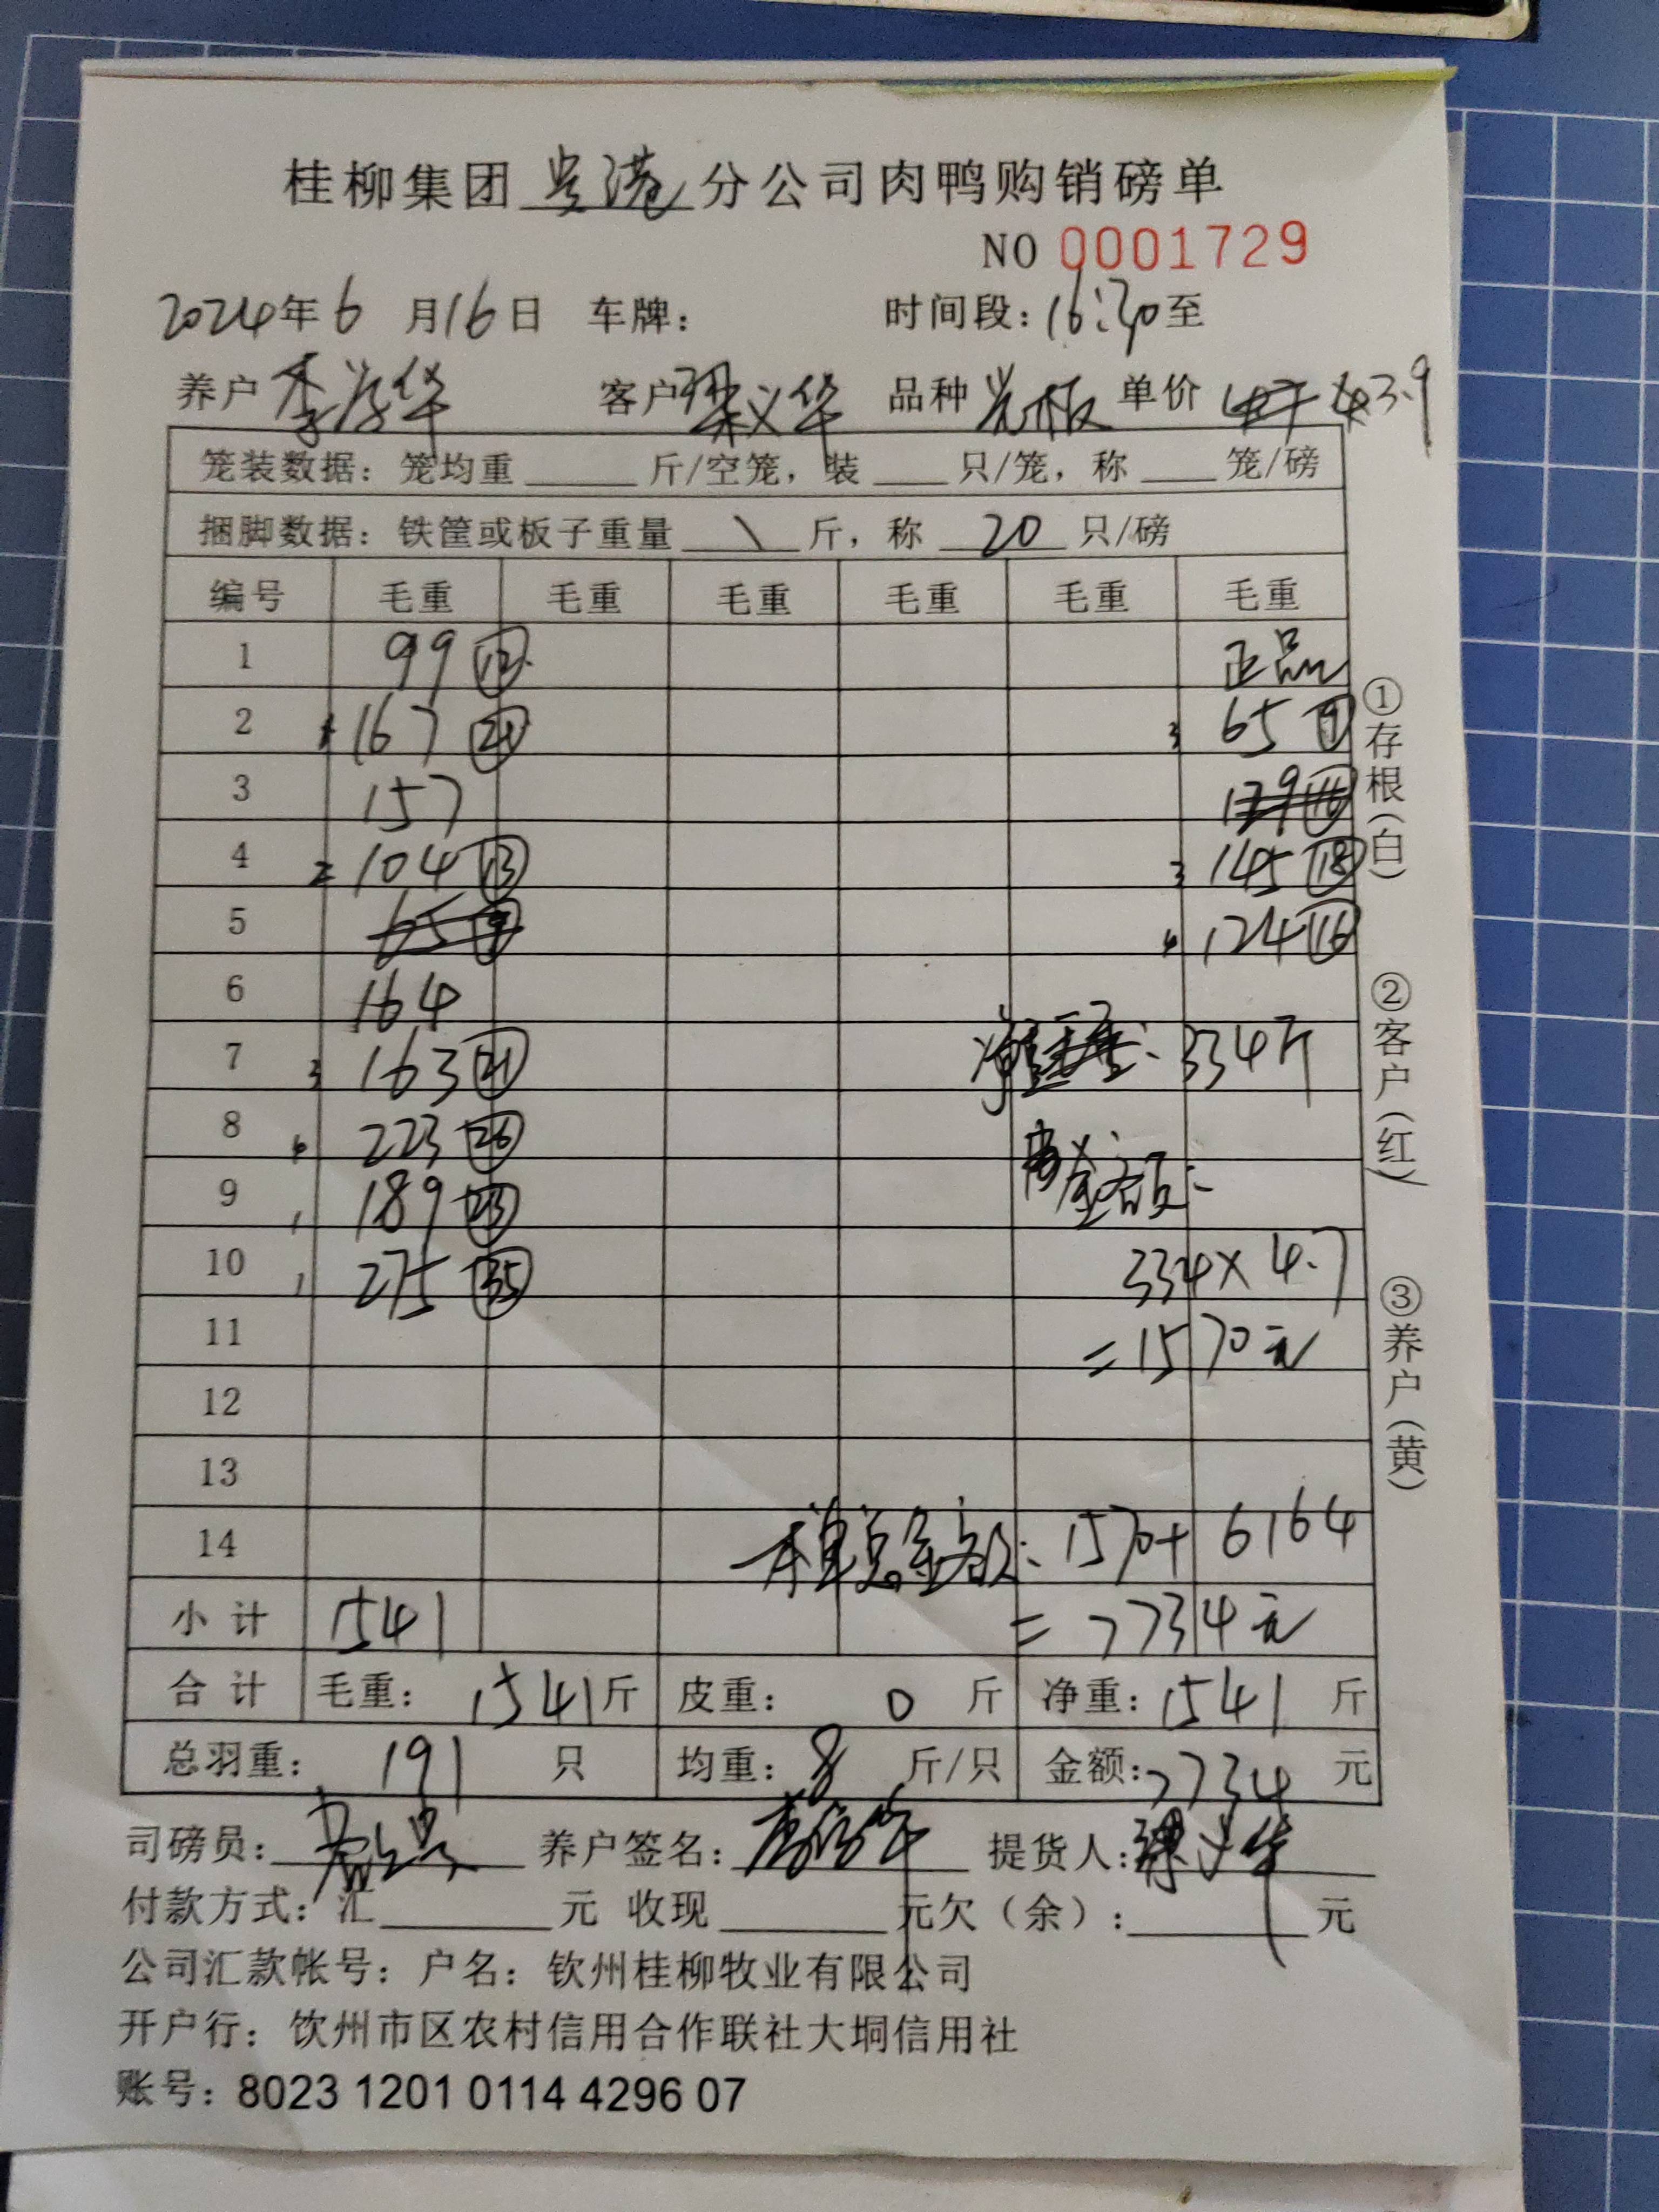 桂柳集团贵港分公司肉鸭购销磅单
NO 0001729
2024年6月16日 车牌： 时间段：16:30至
养户 客户梁义华 品种光板 单价 3.9
笼装数据：笼均重 斤/空笼，装 只/笼，称 笼/磅
捆脚数据：铁筐或板子重量 \ 斤，称 20 只/磅
编号 毛重 毛重 毛重 毛重 毛重 毛重
1 99 ⑫ 正品
2 167 ㉑ 3 65 ⑨
3 157 139 ⑯
4 2 104 ⑬ 3 145 ⑱
5 65 ⑨ 4 124 ⑯
6 164
7 3 163 ㉑ 334斤
8 4 223 ㉖
9 1 189 ㉓ 金额：
10 1 275 ㉟ 334×4.7
11 =1570元
12
13
14 本单总金额：1570+6164
小计 1541 =7734元
合计 毛重：1541斤 皮重：0斤 净重：1541斤
总羽重：191只 均重：8斤/只 金额：7734元
司磅员： 养户签名： 提货人：梁义华
付款方式：汇 元 收现 元欠（余）： 元
公司汇款帐号：户名：钦州桂柳牧业有限公司
开户行：钦州市区农村信用合作联社大垌信用社
账号：8023 1201 0114 4296 07
①存根（白）
②客户（红）
③养户（黄）